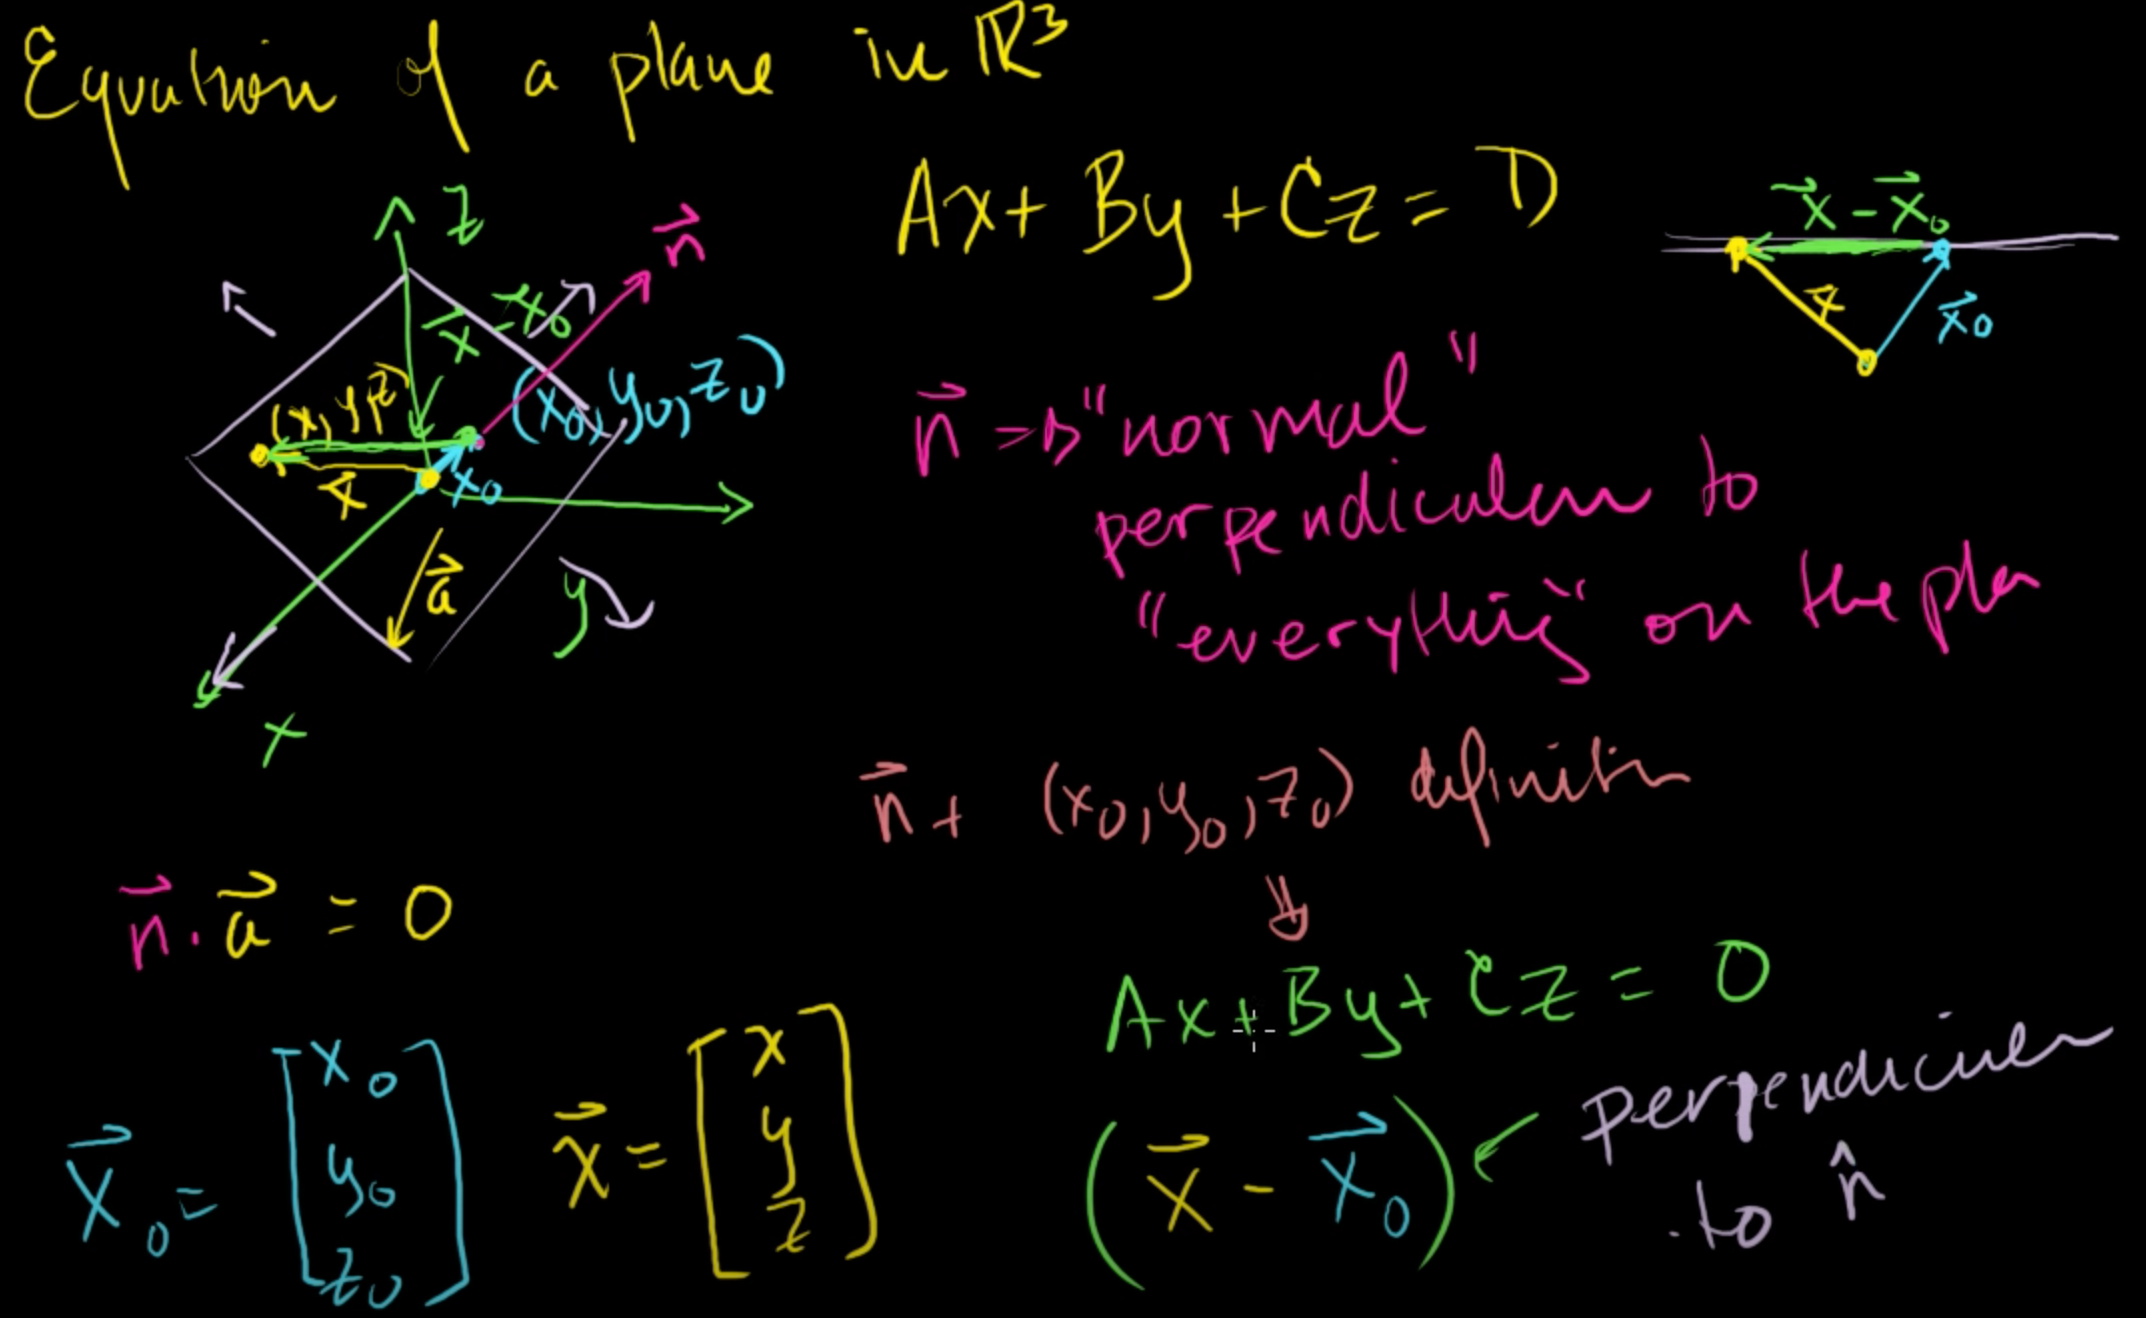 Equation of a plane in ℝ³
Ax + By + Cz = D
z
n⃗
x⃗ - x⃗₀
(x₀, y₀, z₀)
(x, y, z)
x⃗
x₀
a⃗
y
x
x⃗ - x⃗₀
x⃗
x⃗₀
n⃗ → "normal"
perpendicular to
"everything" on the pla
n⃗ + (x₀, y₀, z₀) definition
n⃗ · a⃗ = 0
Ax + By + Cz = 0
x⃗₀ = [x₀ y₀ z₀]
x⃗ = [x y z]
(x⃗ - x⃗₀) ← perpendicular
to n̂